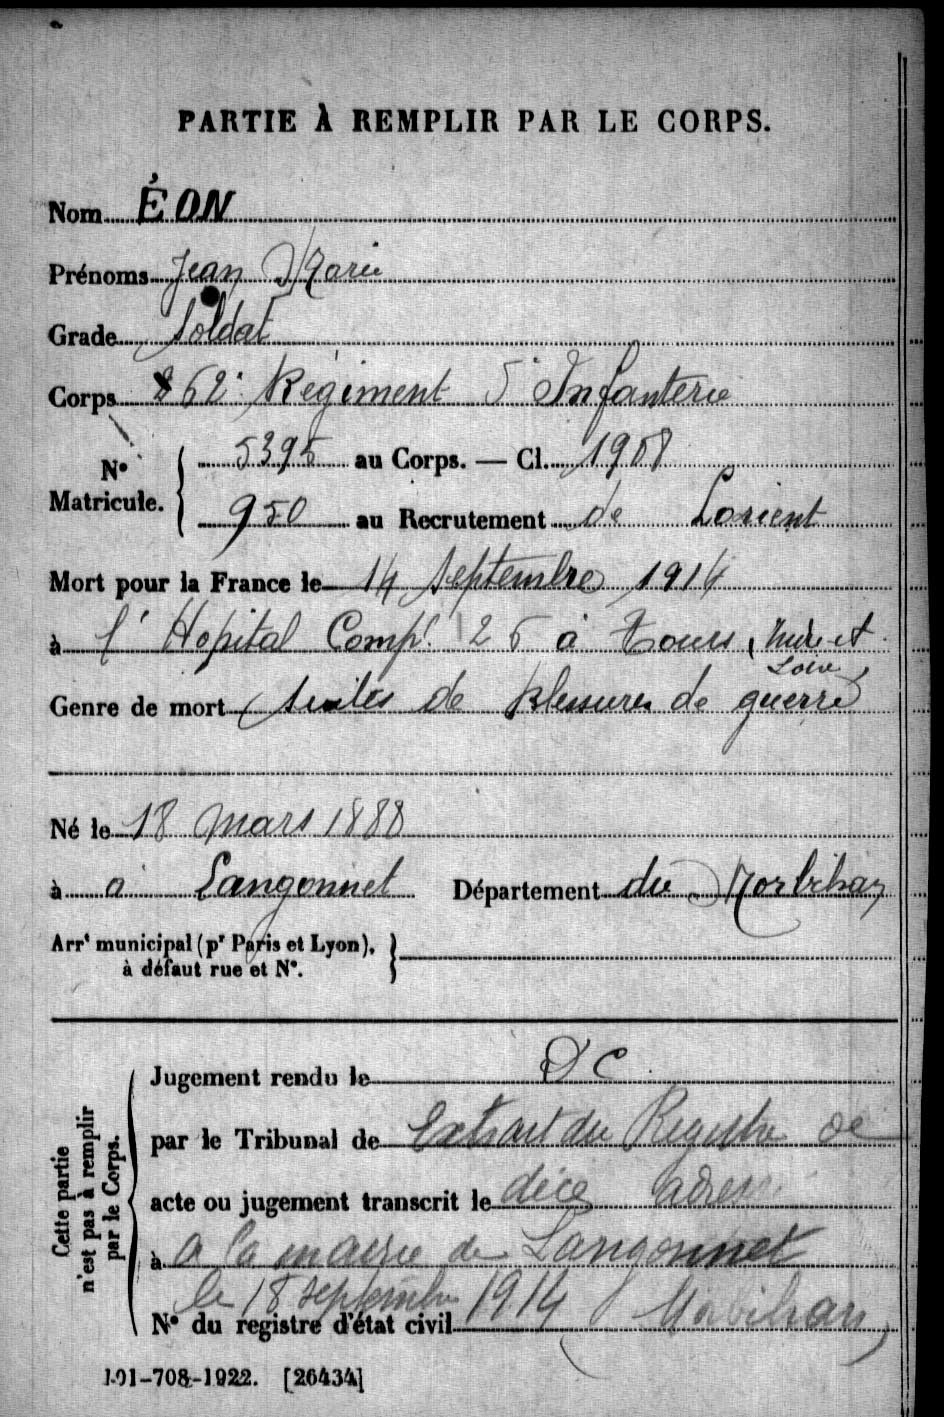 PARTIE À REMPLIR PAR LE CORPS.
Nom ÉON
Prénoms Jean Marie
Grade Soldat
Corps 262e Régiment d'Infanterie
N° Matricule. 5395 au Corps. — Cl. 1908
950 au Recrutement de Lorient
Mort pour la France le 14 Septembre 1914
à l'Hopital Compl. 25 à Tours, Indre et Loire,
Genre de mort Suites de blessures de guerre
Né le 18 mars 1888
à a Langonnet Département du Morbihan
Arrt municipal (pr Paris et Lyon),
à défaut rue et N°.
Cette partie n'est pas à remplir par le Corps.
Jugement rendu le DC
par le Tribunal de Extrait du Registre de
acte ou jugement transcrit le décé adressé
à a la mairie de Langonnet
le 18 septembre 1914 (Morbihan)
N° du registre d'état civil
101-708-1922. [26434]